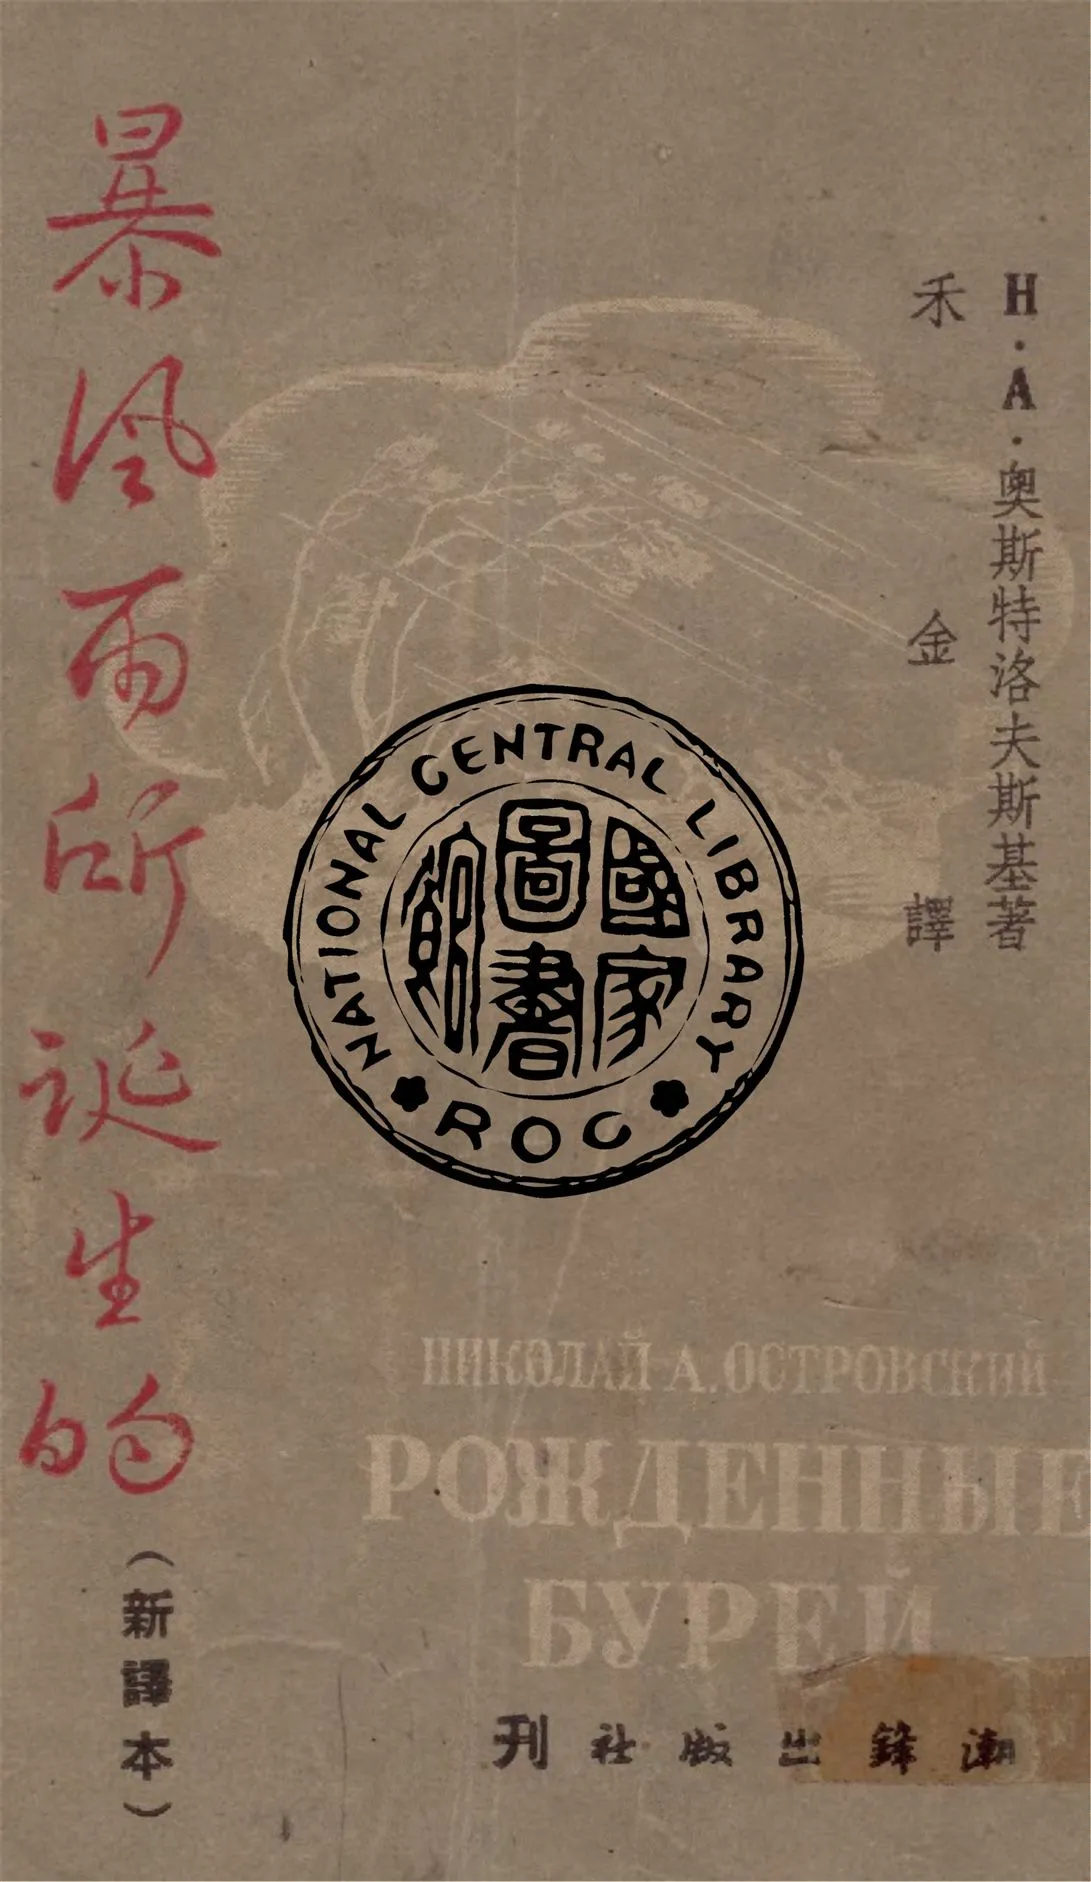 H·A·奧斯特洛夫斯基著
禾金譯
暴風雨所誕生的
（新譯本）
NATIONAL CENTRAL LIBRARY
國家圖書館
ROC
НИКОЛАЙ А. ОСТРОВСКИЙ
РОЖДЕННЫЕ
БУРЕЙ
潮鋒出版社刊